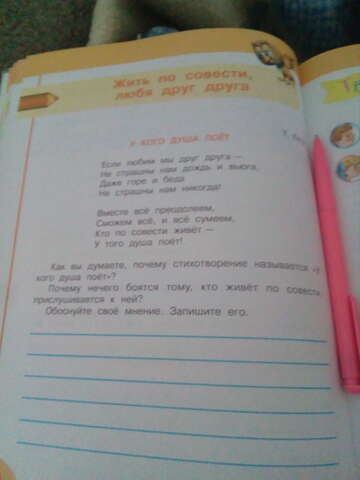 Жить по совести,
любя друг друга
У КОГО ДУША ПОЁТ
Если любим мы друг друга —
Не страшны нам дождь и вьюга,
Даже горе и беда
Не страшны нам никогда!
Вместе всё преодолеем,
Сможем всё, и всё сумеем,
Кто по совести живёт —
У того душа поёт!
Как вы думаете, почему стихотворение называется «У
кого душа поёт»?
Почему нечего боятся тому, кто живёт по совести,
прислушивается к ней?
Обоснуйте своё мнение. Запишите его.